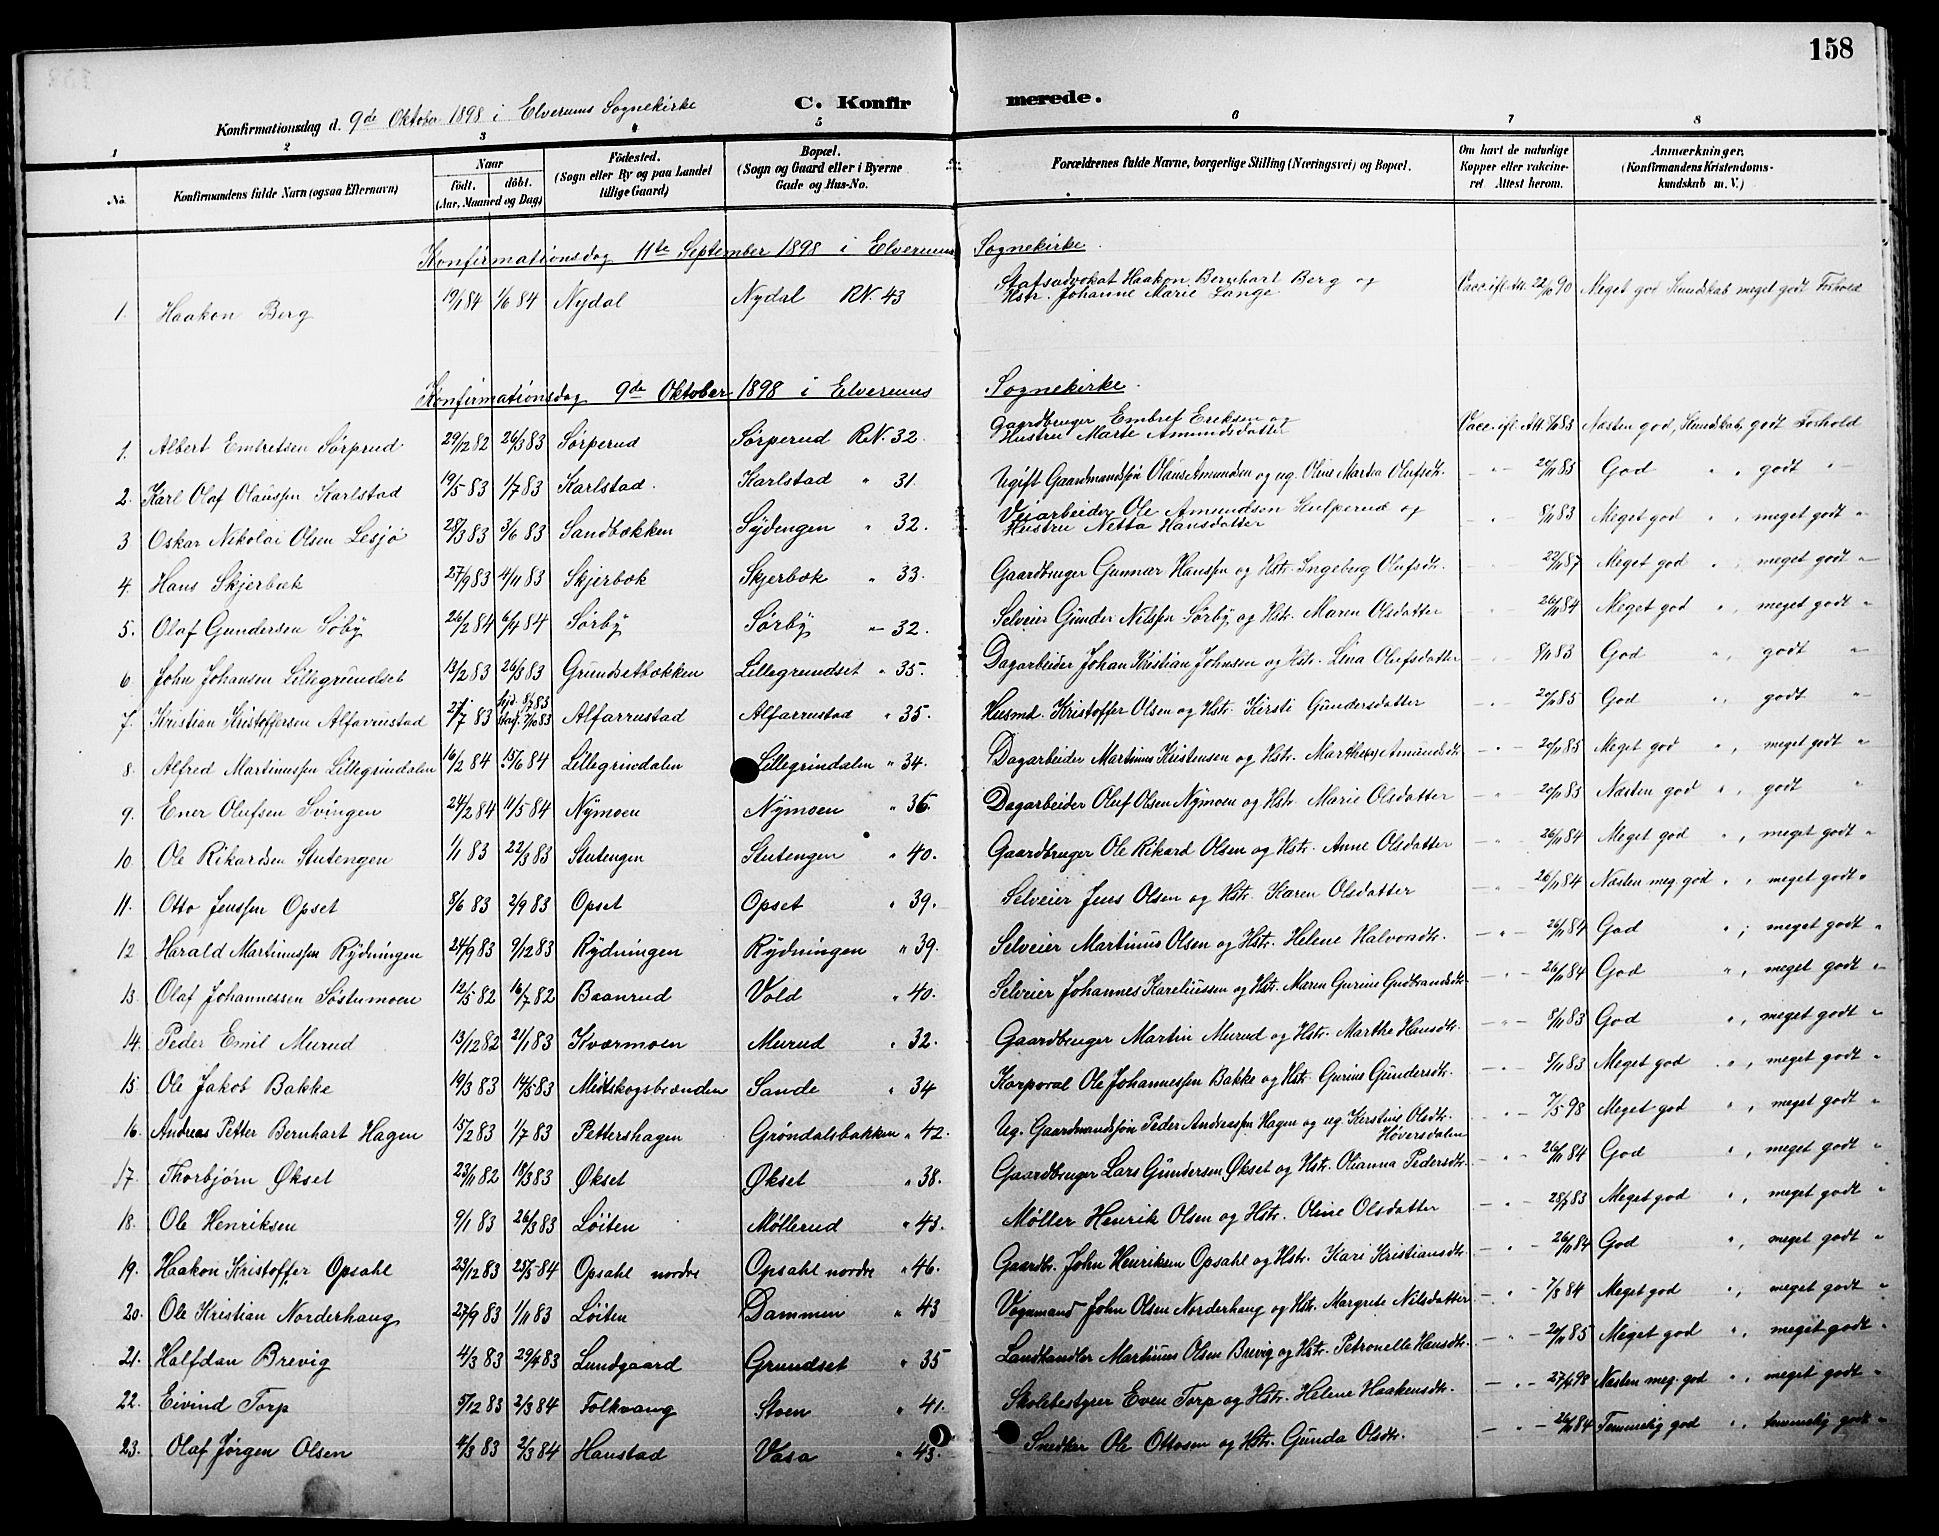 158
C. Konfirmerede.
Konfirmationsdag d. 9de Oktober 1898 i Elverums Sognekirke
1 2 3 4 5 6 7 8
No. Konfirmandens fulde Navn (ogsaa Efternavn) Naar födt, döbt. (Aar, Maaned og Dag) Födested. (Sogn eller By og paa Landet tillige Gaard) Bopæl. (Sogn og Gaard eller i Byerne Gade og Hus-No. Forældrenes fulde Navne, borgerlige Stilling (Næringsvei) og Bopæl. Om havt de naturlige Kopper eller vaccineret. Attest herom. Anmærkninger. (Konfirmandens Kristendomskundskab m. V.)
Konfirmationsdag 11te September 1898 i Elverums Sognekirke.
1. Haakon Berg 19/1 84 1/6 84 Nydal Nydal RN. 43 Statsadvokat Haakon Bernhart Berg og Hstr. Johanne Marie Lange Vacc. ifl. Att. 22/10 90 Meget god Kundskab meget godt Forhold
Konfirmationsdag 9de Oktober 1898 i Elverums Sognekirke.
1. Albert Embretsen Sørprud 29/12 82 26/3 83 Sørperud Sørperud R.N. 32. Gaardbruger Embret Eriksen og Hustru Marte Amundsdatter Vacc. ifl. Att. 8/11 83 Næsten god, Kundskab, godt Forhold
2. Karl Olaf Olaussen Karlstad 19/5 83 1/7 83 Karlstad. Karlstad " 31. Ugift Gaardmandssøn Olaus Amundsen og ug. Oline Martea Olufsdtr. - " - 20/11 85 God " , godt "
3 Oskar Nikolai Olsen Lesjø 28/3 83 3/6 83 Sandbækken Sydengen " 32. Veiarbeider Ole Amundsen Kulperud og Hustru Netta Hansdatter - " - 8/11 83 Meget god " , meget godt "
4. Hans Skjerbæk 27/9 83 4/11 83 Skjerbæk Skjerbæk " 33. Gaardbruger Gunnar Hanssen og Hstr. Ingebrg Olufsdtr. - " - 22/11 87 Meget god " , meget godt "
5. Olaf Gundersen Søby 26/2 84 6/4 84 Sørby Sørby " 32. Selveier Gunder Nilssen Sørby og Hstr. Maren Olsdatter - " - 26/11 84 Meget god " , meget godt "
6. John Johansen Lillegrundset 13/2 83 26/3 83 Grundsetbækken Lillegrundset " 35. Dagarbeider Johan Kristian Johnsen og Hstr. Lina Olufsdatter - " - 8/11 83 God " , godt "
7. Kristian Kristoffersen Alfarrustad 27/7 83 Hjd. 8/7 83 Stadf. 7/10 83 Alfarrustad Alfarrustad " 35. Husmd. Kristoffer Olsen og Hstr. Kirsti Gundersdatter - " - 20/11 85 God " , godt "
8. Alfred Martinussen Lillegrindalen 16/2 84 15/6 84 Lillegrindalen Lillegrindalen " 34. Dagarbeider Martinus Kristensen og Hstr. Marthea Amundsdtr - " - 20/11 85 Meget god " , meget godt "
9. Ener Olufsen Svingen 24/2 84 11/5 84 Nymoen Nymoen " 36. Dagarbeider Oluf Olsen Nymoen og Hstr. Marie Olsdatter - " - 20/11 85 Næsten god " , godt "
10. Ole Rikardsen Stutengen 1/1 83 22/3 83 Stutengen Stutengen " 40. Gaardbruger Ole Rikard Olsen og Hstr. Anne Olsdatter - " - 26/11 84 Meget god " , meget godt "
11. Otto Jenssen Opset 8/6 83 2/9 83 Opset Opset " 39. Selveier Jens Olsen og Hstr. Karen Olsdatter - " - 26/11 84 Næsten meg. god " , meget godt "
12 Harald Martinussen Rydningen 24/9 83 9/12 83 Rydningen Rydningen " 39. Selveier Martinus Olsen og Hstr. Helene Halvorsdtr. - " - 26/11 84 God " , meget godt "
13. Olaf Johannessen Søstumoen 12/5 82 16/7 82 Baanrud Vold " 40. Selveier Johannes Kareliussen og Hstr. Maren Gurine Gudbrandsdtr - " - 26/11 84 God " , meget godt "
14. Peder Emil Murud 13/12 82 21/1 83 Kværmoen Murud " 32. Gaardbruger Martin Murud og Hstr. Marthe Hansdtr. - " - 8/11 83 God " , meget godt "
15. Ole Jakob Bakke 19/3 83 14/5 83 Midtskogsbrænden Sande " 34 Korporal Ole Johannessen Bakke og Hstr. Gurine Gundersdtr. - " - 8/11 83 Meget god " , meget godt "
16. Andreas Petter Bernhart Hagen 15/2 83 1/7 83 Pettershagen Grøndalsbakken " 42. Ug. Gaardmandssøn Peder Andreassen Hagen og ug. Kerstine Olsdtr. Høversdalen - " - 7/5 98 Meget god " , meget godt "
17. Thorbjørn Økset 23/11 82 18/3 83 Økset Økset " 38. Gaardbruger Lars Gundersen Økset og Hstr. Olianna Pedersdtr. - " - 26/11 84 God " , meget godt "
18. Ole Henriksen 9/1 83 26/3 83 Løiten Møllerud " 43. Møller Henrik Olsen og Hstr. Oline Olsdatter - " - 28/7 83 Meget god " , meget godt "
19. Haakon Kristoffer Opsahl 23/12 83 25/5 84 Opsahl nordre Opsahl nordre " 46. Gaardbr. John Henriksen Opsahl og Hstr. Kari Kristiansdtr. - " - 26/11 84 God " , meget godt "
20. Ole Kristian Norderhaug 27/9 83 1/11 83 Løiten Dammen " 43 Vognmand John Olsen Norderhaug og Hstr. Margrete Nilsdatter - " - 7/8 84 Meget god " , meget godt "
21. Halfdan Brevig 4/3 83 29/4 83 Lundgaard Grundset " 35 Landhandler Martinus Olsen Brevig og Hstr. Petronelle Hansdtr. - " - 20/11 85 Meget god " , meget godt "
22. Eivind Torp 5/12 83 2/3 84 Folkvang Stoen " 41. Skolebestyrer Even Torp og Hstr. Helene Haakensdtr. - " - 27/9 98 Næsten meg. god " , meget godt "
23. Olaf Jørgen Olsen 4/3 83 2/3 84 Hanstad Vasa " 43. Snedker Ole Ottosen og Hstr. Gunda Olsdtr. - " - 26/11 84 Temmelig god " , temmelig godt "